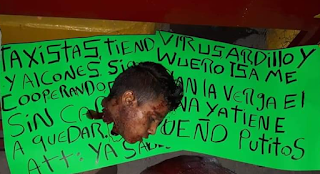 TAXISTAS TIEND VIRUS ARDILLO Y
Y ALCONES SI WUERO ISA ME
COOPERANDO AN LA VERGA EL
SIN CA NA YA TIENE
A QUEDAR UEÑO PUTITOS
ATT: YA SABE